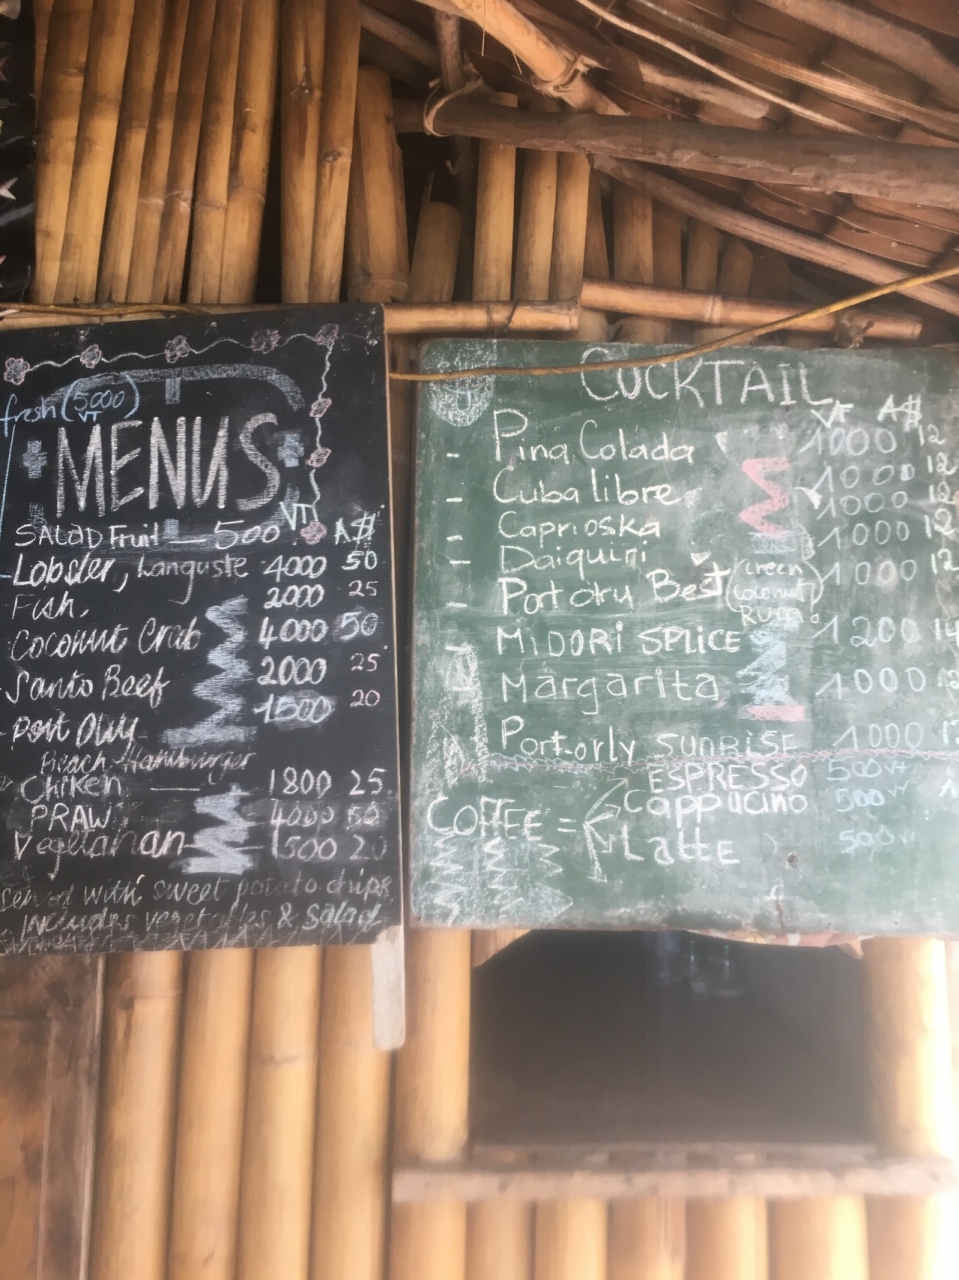 fresh (5000)
VT
MENUS
VT A$
SALAD Fruit — 500
Lobster, Languste 4000 50
Fish, 2000 25
Coconut Crab 4000 50
Santo Beef 2000 25
Port Olry 1500 20
Beach Hamburger
Chiken — 1800 25
PRAW 4000 50
Vegetarian 1500 20
served with sweet potato chips
includes vegetables & Salad
COCKTAIL
VT A$
- Pina Colada 1000 12
- Cuba libre 1000 12
- Caprioska 1000 12
- Daiquiri 1000 12
- Port olry Best (Green Coconut + Rum) 1000 12
- MIDORI SPLICE 1200 14
Margarita 1000
Port-orly SUNRISE 1000
COFFEE = ESPRESSO 500 VT
Cappucino 500 VT
Latte 500 VT